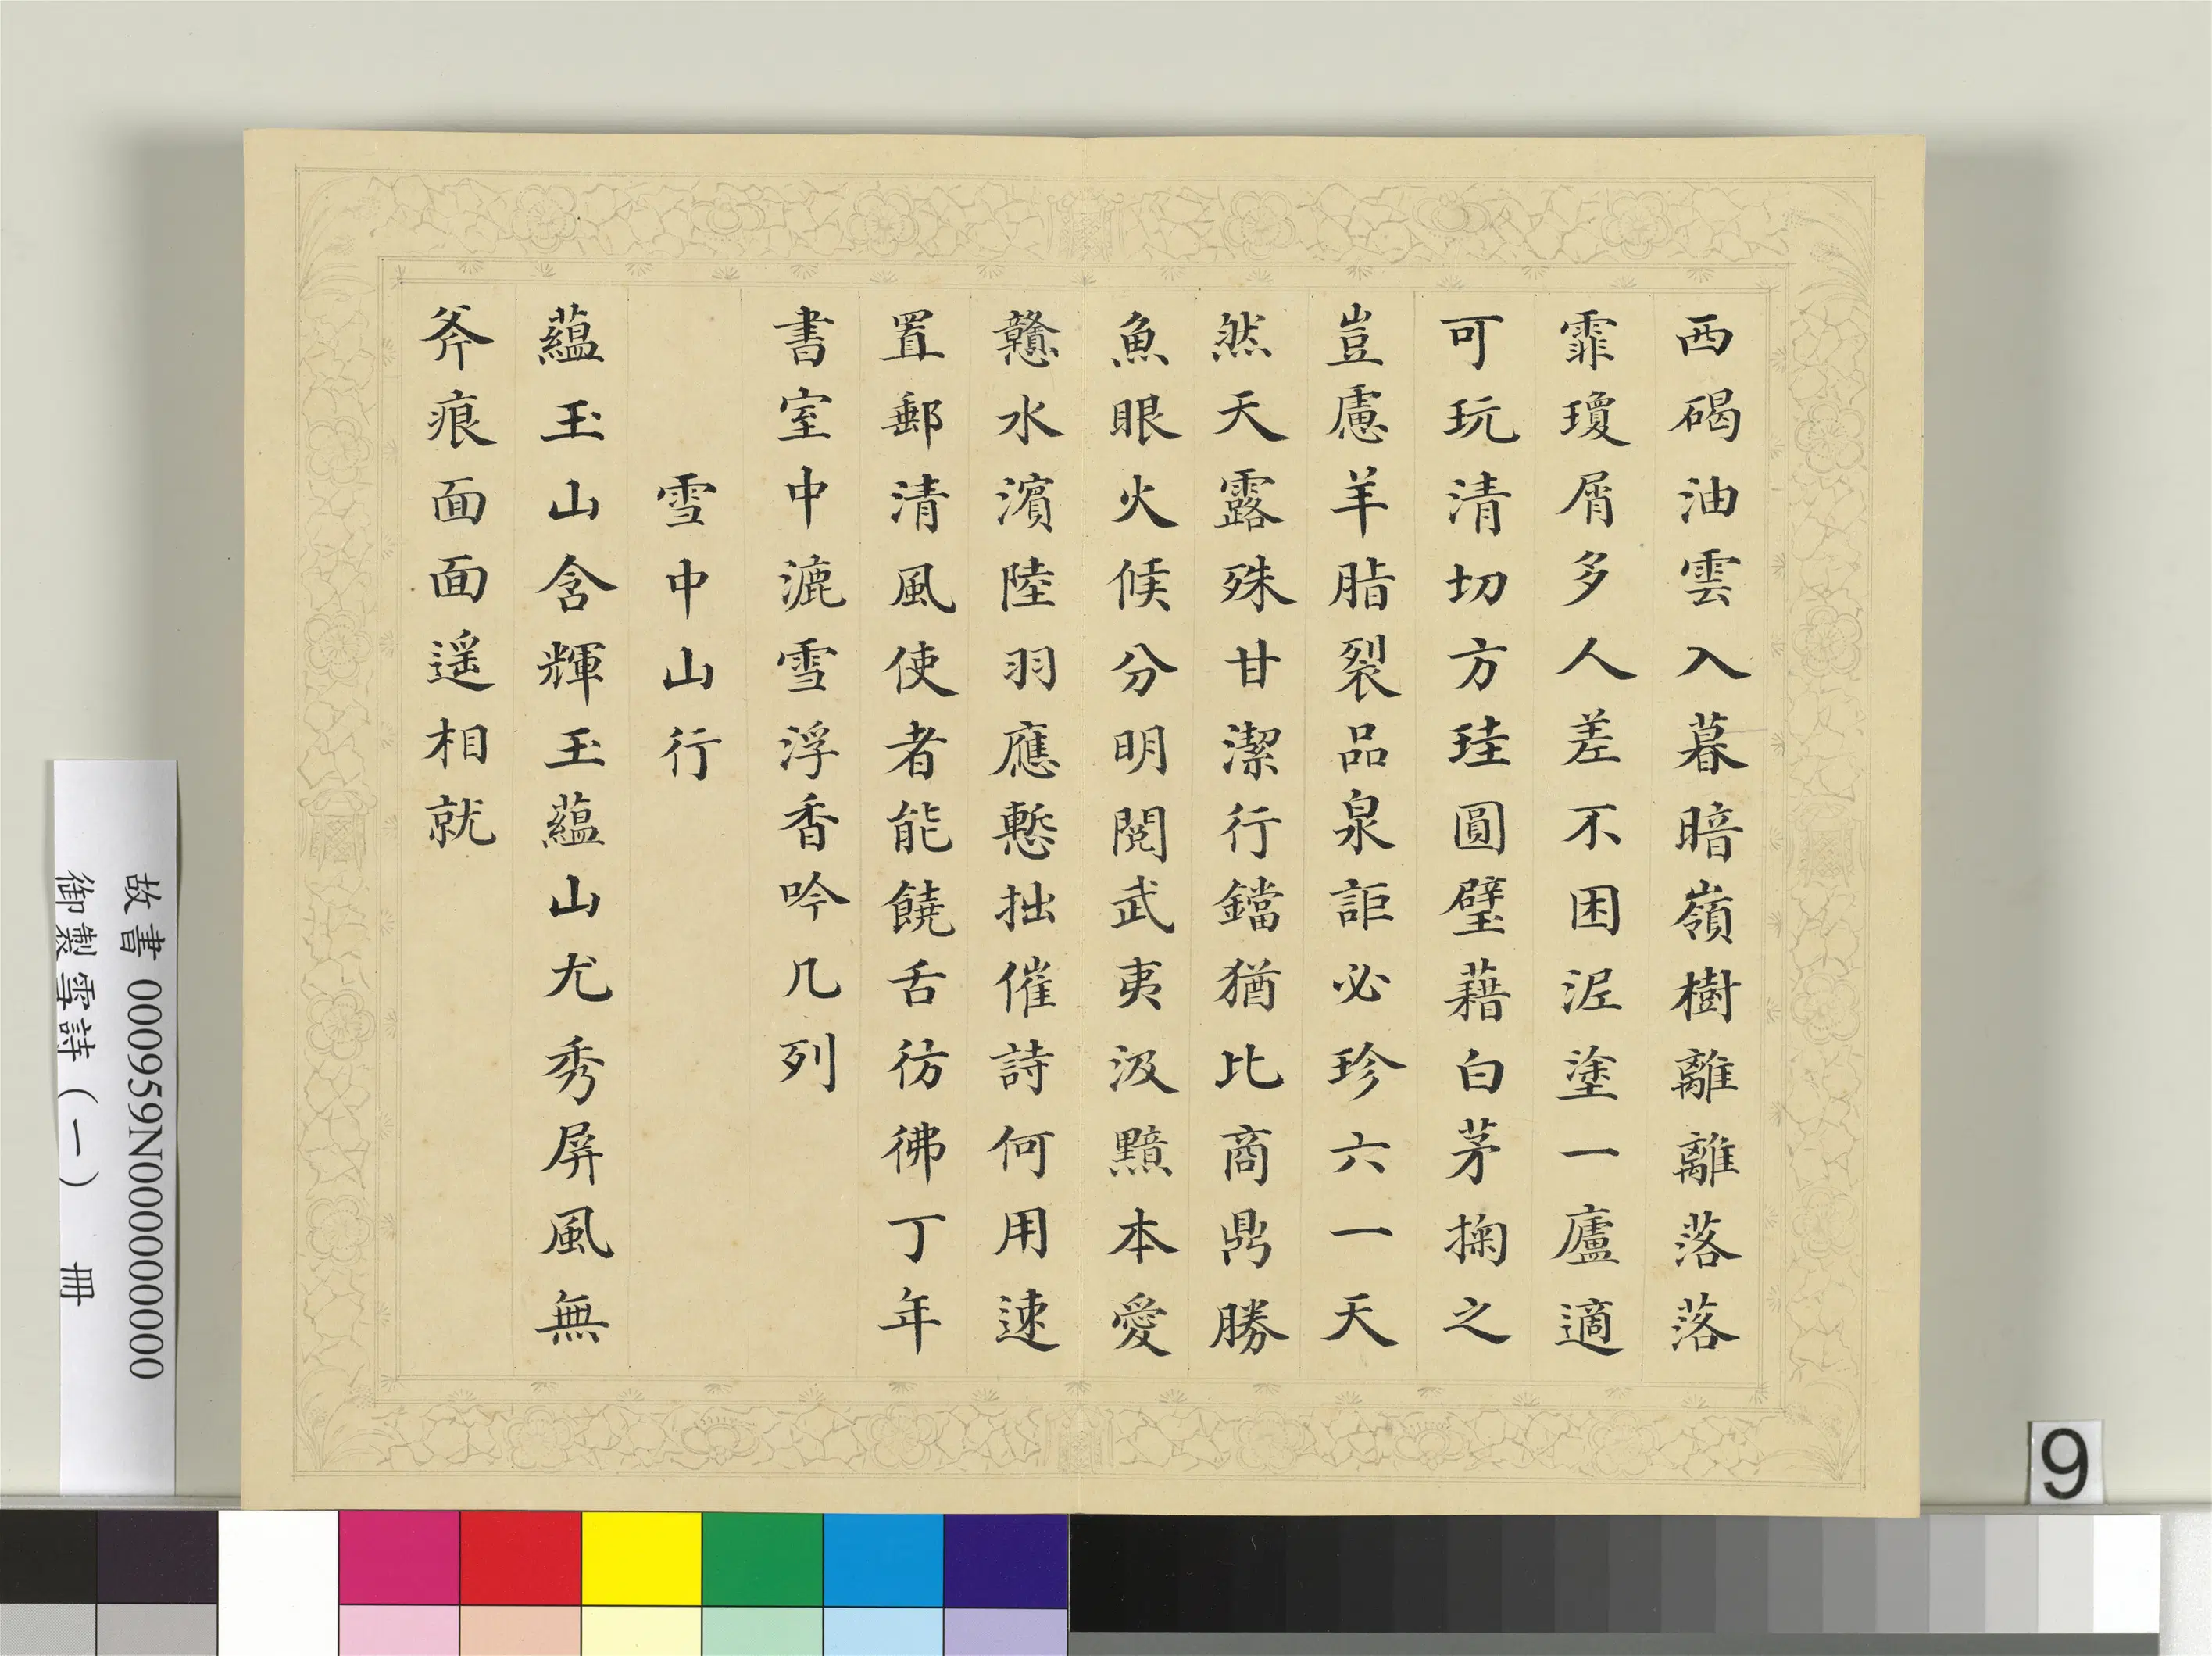 西碣油雲入暮暗嶺樹離離落落
霏瓊屑多人差不困泥塗一廬適
可玩清切方珪圓璧藉白茅掬之
豈慮羊脂裂品泉詎必珍六一天
然天露殊甘潔行鐺猶比商鼎勝
魚眼火候分明閱武夷汲黯本愛
戇水濱陸羽應慙拙催詩何用速
置郵清風使者能饒舌彷彿丁年
書室中漉雪浮香吟几列
雪中山行
蘊玉山含輝玉蘊山尤秀屏風無
斧痕面面遥相就
故書 000959N000000000
御製雪詩(一) 冊
9